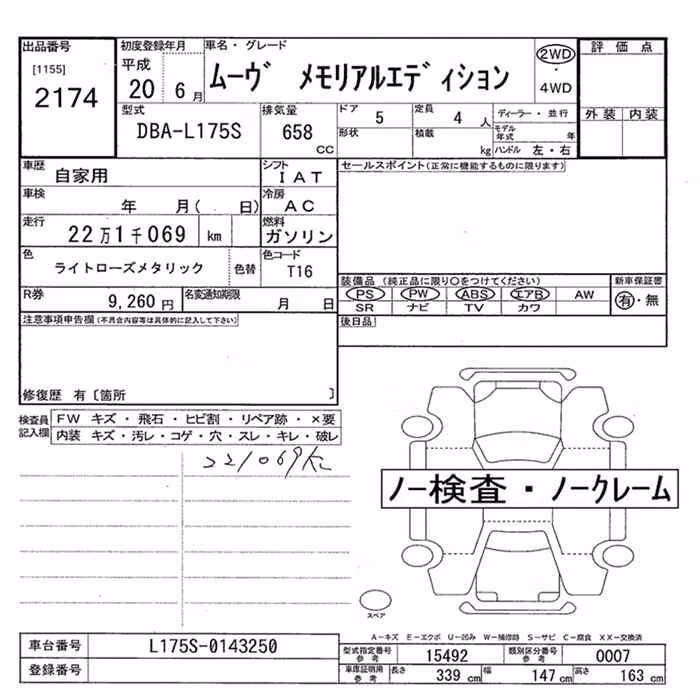 出品番号
[1155]
2174
初度登録年月
平成
20 6月
車名・グレード
ムーヴ メモリアルエディション
2WD
・
4WD
評価点
外装 内装
型式
DBA-L175S
排気量
658
CC
ドア
5
定員
4 人
形状
積載
kg
ディーラー・並行
モデル年式 年
ハンドル 左・右
車歴
自家用
シフト
IAT
セールスポイント(正常に機能するものに限ります)
車検
年 月( 日)
冷房
AC
走行
22万1千069 km
燃料
ガソリン
色
ライトローズメタリック
色替
色コード
T16
R券
9,260円
名変通知期限
月 日
装備品 (純正品に限り○をつけてください)
PS PW ABS エアB AW
SR ナビ TV カワ
新車保証書
有・無
注意事項申告欄(不具合内容等は具体的に記入して下さい)
後日品
修復歴 有〔箇所 〕
検査員記入欄
FW キズ・飛石・ヒビ割・リペア跡・×要
内装 キズ・汚レ・コゲ・穴・スレ・キレ・破レ
221069K
ノー検査・ノークレーム
スペア
A-キズ E-エクボ U-凹み W-補修跡 S-サビ C-腐食 XX-交換済
車台番号
L175S-0143250
登録番号
型式指定番号参考
15492
類別区分番号参考
0007
車庫証明用参考
長さ 339cm
幅 147cm
高さ 163cm